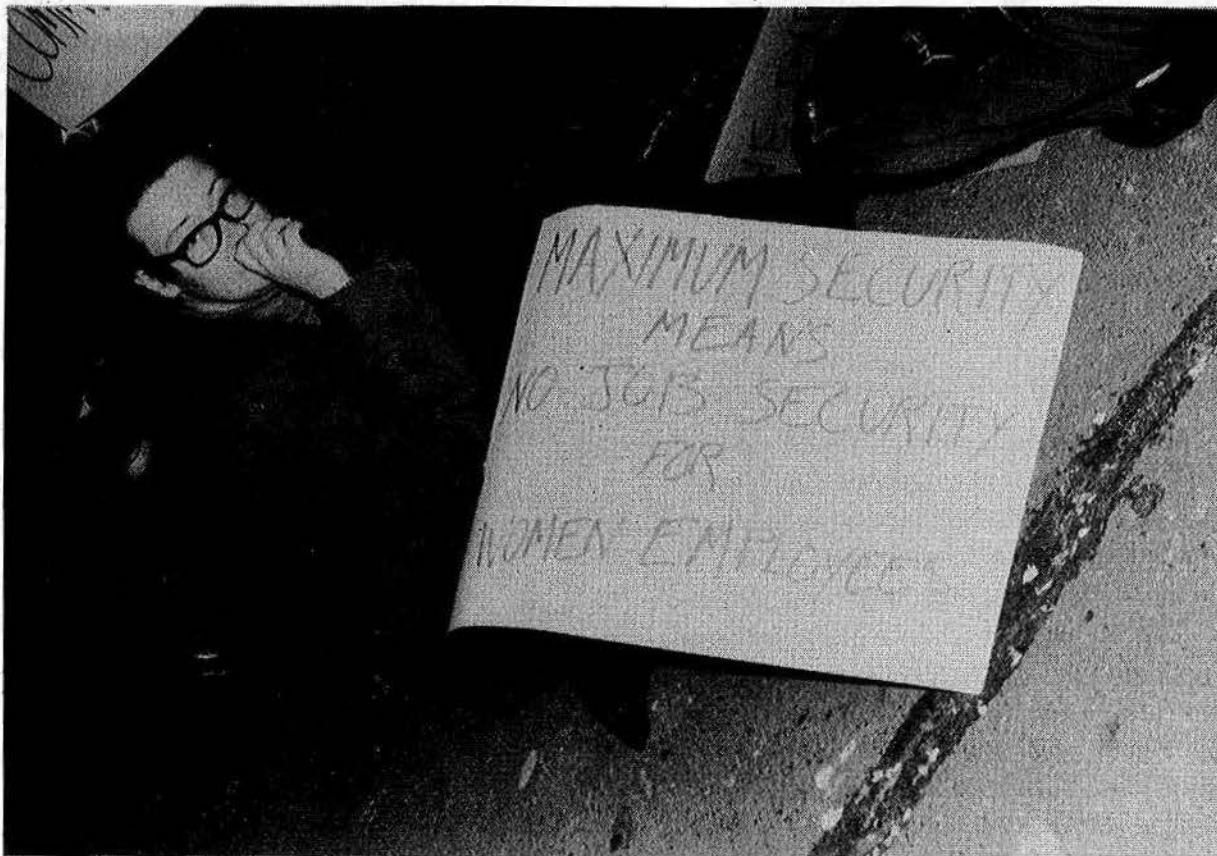 MAXIMUM SECURITY
MEANS
NO JOB SECURITY
FOR
WOMEN EMPLOYEES